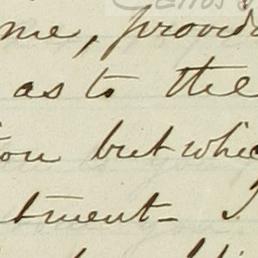 me, provid
as to the
ou but whic
tment- I